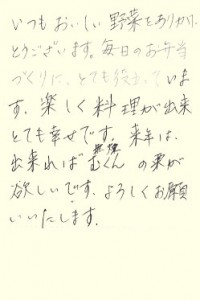 いつもおいしい野菜をありがと
とうございます。毎日のお弁当
づくりに、とても役立っていま
す。楽しく料理が出来
とても幸せです。来年は、
出来れば の実が
欲しいです。よろしくお願
いいたします。